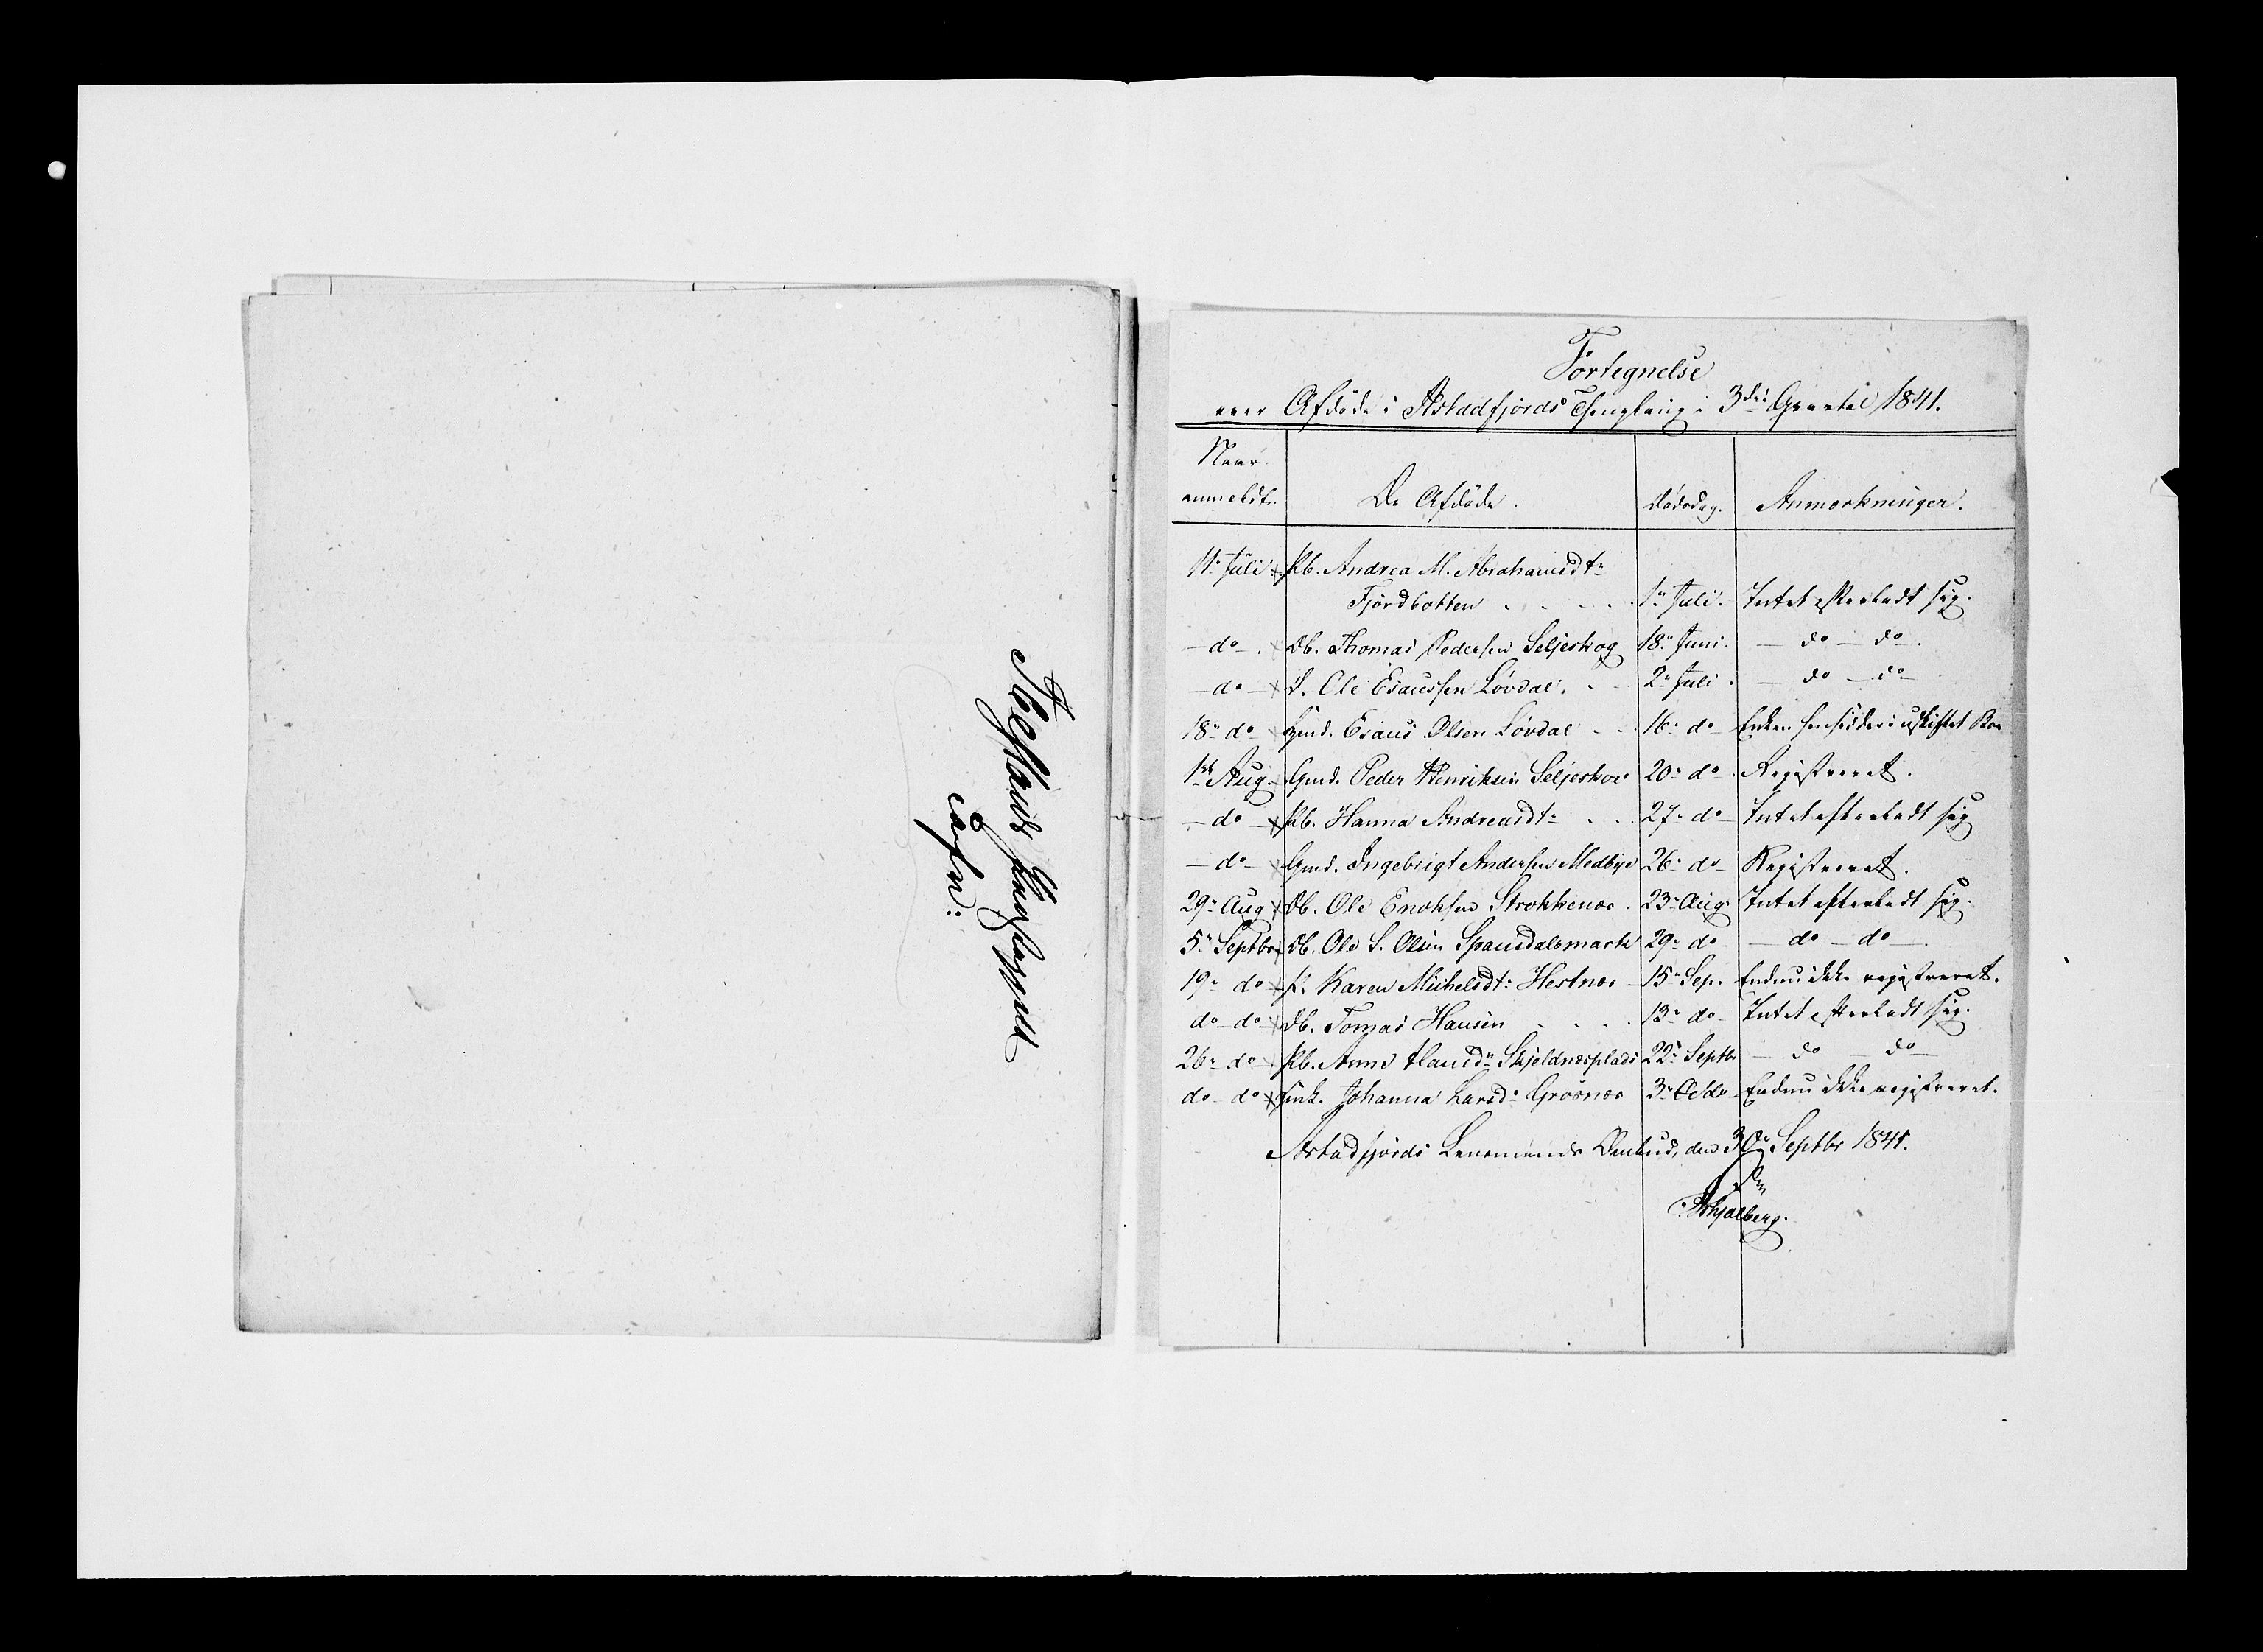 Ibestads
Fortegnelse
over Afdöde i Astadfjords Thinglaug i 3die Qvartal 1841.
Naar
anmeldt. De Afdöde. Dødsdag. Anmærkninger.
11te Juli Pb. Andrea M. Abrahamsdtr
Fjordbotten 1te Juli. Intet efterladt sig.
do Db. Thomas Pedersen Seljeskog 18de Juni. do do
do S. Ole Esaussen Løvdal. 2den Juli do do
18de do Gmd. Esaus Olsen Løvdal 16de do Enken hensidder i uskiftet Boe
1ste Aug. Gmd. Peder Henriksen Seljeskov 20de do Registreret.
do Pb. Hanna Andreasdtr 27de do Intet efterladt sig
do Gmd. Ingebrigt Andersen Medbye 26de do Registreret.
29de Aug. Db. Ole Enoksen Strokkenæs 23de Aug. Intet efterladt sig.
5te Septbr Db. Ole S. Olsen Spansdalsmark 29de do do do
19de do P. Karen Michelsdtr Hestnæs 15de Sep. Endnu ikke registreret.
do do Db. Tomas Hansen 13de do Intet efterladt sig.
26de do Pb. Anne Hansdtr Skjeldnæsplads 22de Septbr do do
do do Enk. Johanna Larsdtr Grøsnæs 3de do Endnu ikke registreret.
Astadfjords Lensmands Ombud, den 30te Septbr 1841.